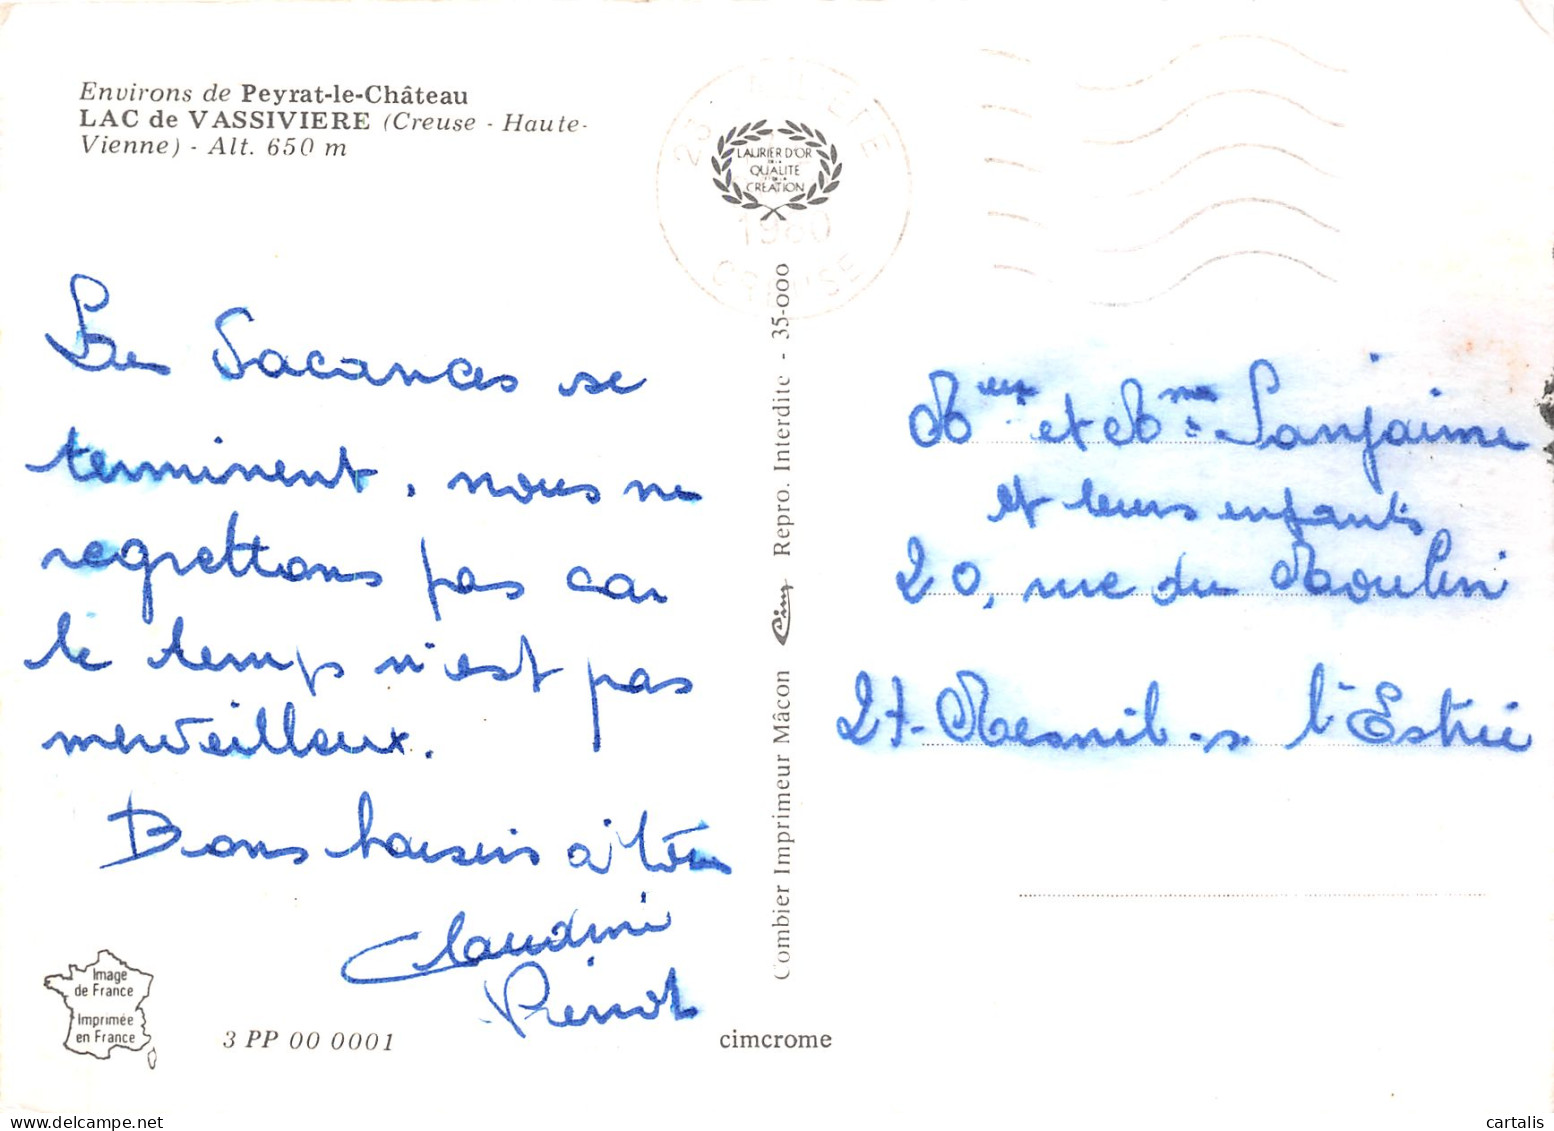 Environs de Peyrat-le-Château
LAC de VASSIVIERE (Creuse - Haute-
Vienne) - Alt. 650 m
LAURIER D'OR
DE LA
QUALITÉ
ET DE LA
CRÉATION
1980
CREUSE
Les Vacances se
terminent, nous ne
regrettons pas car
le temps n'est pas
merveilleux.
Bons baisers à tous
Claudine
Combier Imprimeur Mâcon Cim Repro. Interdite - 35-000
Mr et Mme Sanjaime
et leurs enfants
20, rue du Moulin
27-Mesnil-s- l'Estrée
Image
de France
Imprimée
en France
3 PP 00 0001
cimcrome
cartalis